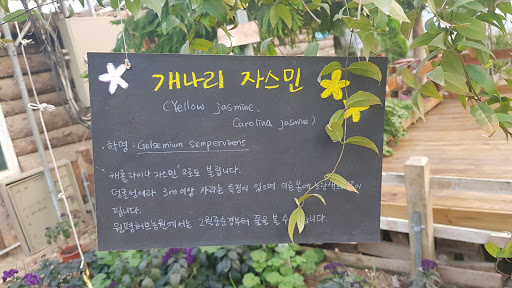 개나리 자스민
(Yellow jasmine,
Carolina jasmine)
· 학명 : Gelsemium sempervirens
'캐롤라이나 자스민'으로도 불립니다.
덩굴성이라 3m이상 자라는 특징이 있으며 이른봄에 노란색
핍니다.
월평허브농원에서는 2월중순경부터 꽃을 볼 수 있습니다.